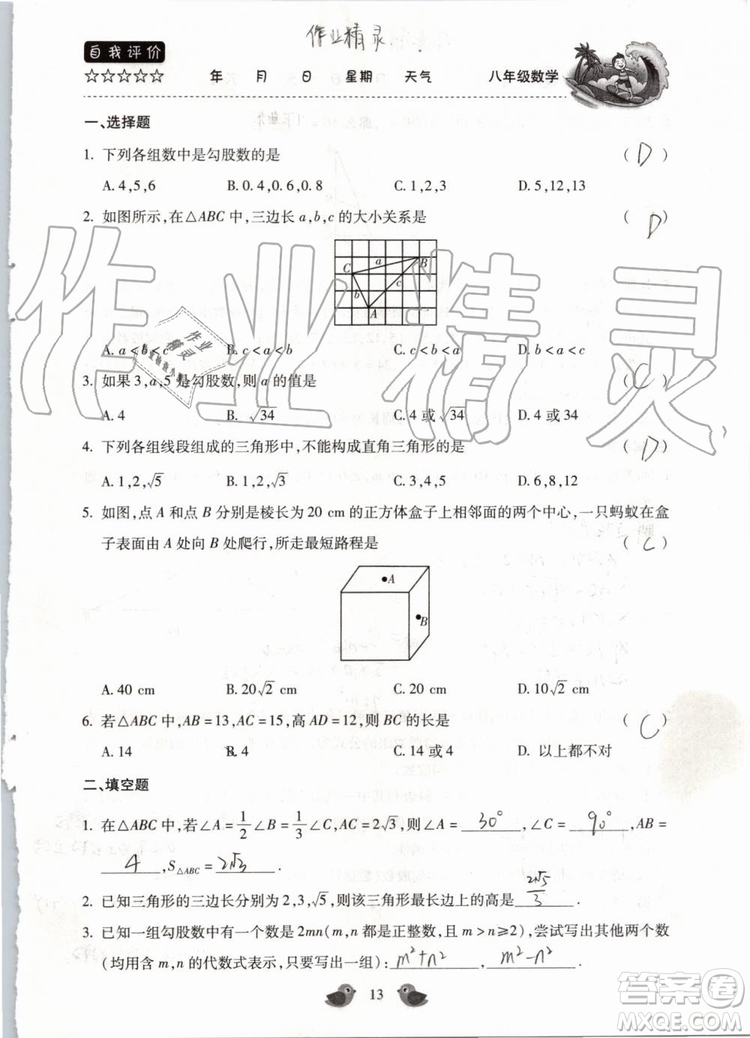 作业精灵
自我评价
☆☆☆☆☆ 年 月 日 星期 天气 八年级数学
一、选择题
1. 下列各组数中是勾股数的是 ( D )
A. 4,5,6 B. 0.4,0.6,0.8 C. 1,2,3 D. 5,12,13
2. 如图所示,在△ABC 中,三边长 a,b,c 的大小关系是 ( D )
C a B
b c
A
A. a<b<c B. c<a<b C. c<b<a D. b<c<a
3. 如果 3,a,5 是勾股数,则 a 的值是 ( C )
A. 4 B. √34 C. 4 或√34 D. 4 或 34
4. 下列各组线段组成的三角形中,不能构成直角三角形的是 ( D )
A. 1,2,√5 B. 1,2,√3 C. 3,4,5 D. 6,8,12
5. 如图,点 A 和点 B 分别是棱长为 20 cm 的正方体盒子上相邻面的两个中心,一只蚂蚁在盒
子表面由 A 处向 B 处爬行,所走最短路程是 ( C )
A
B
A. 40 cm B. 20√2 cm C. 20 cm D. 10√2 cm
6. 若△ABC 中,AB=13,AC=15,高 AD=12,则 BC 的长是 ( C )
A. 14 B. 4 C. 14 或 4 D. 以上都不对
二、填空题
1. 在△ABC 中,若∠A=1/2∠B=1/3∠C,AC=2√3,则∠A= 30° ,∠C= 90° ,AB=
4 ,S△ABC= 2√3 .
2. 已知三角形的三边长分别为 2,3,√5,则该三角形最长边上的高是 2√5/3 .
3. 已知一组勾股数中有一个数是 2mn(m,n 都是正整数,且 m>n≥2),尝试写出其他两个数
(均用含 m,n 的代数式表示,只要写出一组): m²+n² 、 m²-n² .
13
作业精灵
作业
精灵
答案圈
MXQE.COM